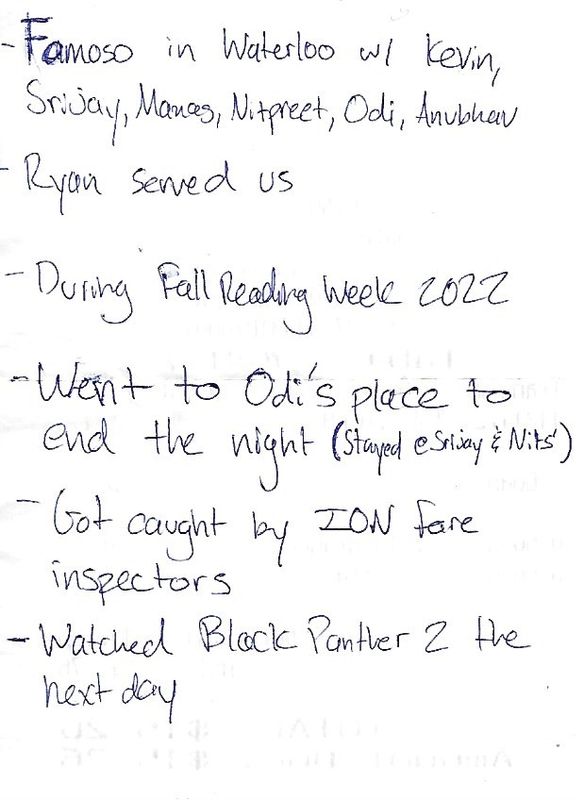 - Famoso in Waterloo w/ Kevin,
Srijay, Manas, Nitpreet, Odi, Anubhav
- Ryan served us
- During Fall Reading Week 2022
- Went to Odi's place to
end the night (Stayed @ Srijay & Nits')
- Got caught by ION fare
inspectors
- Watched Black Panther 2 the
next day